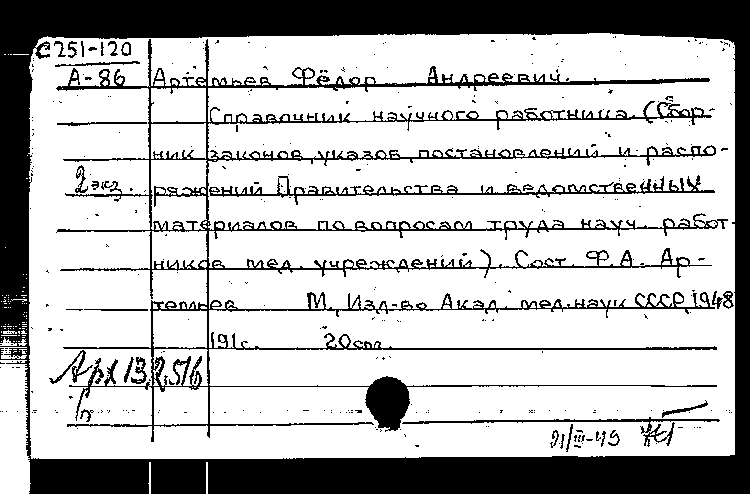 С251-120
А-86 Артемьев Фёдор Андреевич.
Справочник научного работника. (Сбор-
ник законов, указов, постановлений и распо-
2 экз. ряжений Правительства и ведомственных
материалов по вопросам труда науч. работ-
ников мед. учреждений). Сост. Ф.А. Ар-
темьев М., Изд-во Акад. мед. наук СССР, 1948
191с. 20см.
Арх 13,2,516
21/III-49